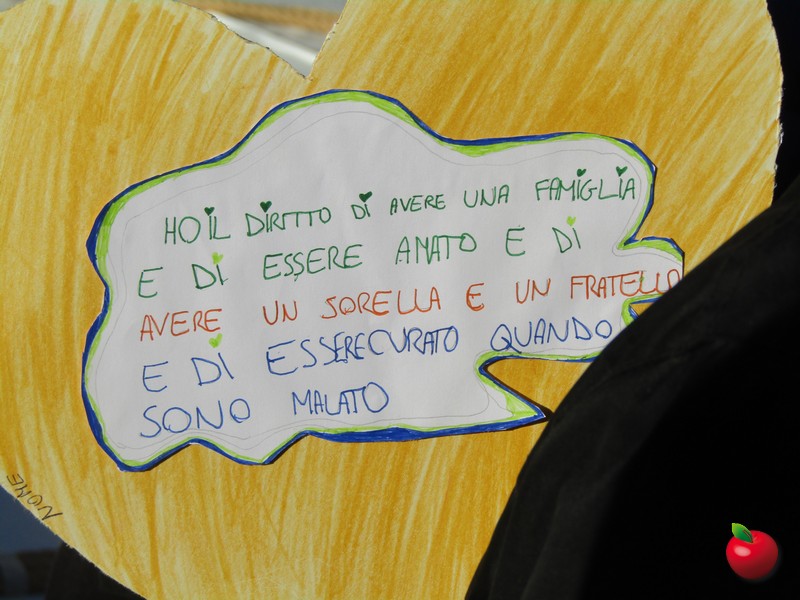 HO IL DIRITTO DI AVERE UNA FAMIGLIA
E DI ESSERE AMATO E DI
AVERE UN SORELLA E UN FRATELLO
E DI ESSERE CURATO QUANDO
SONO MALATO
NOME